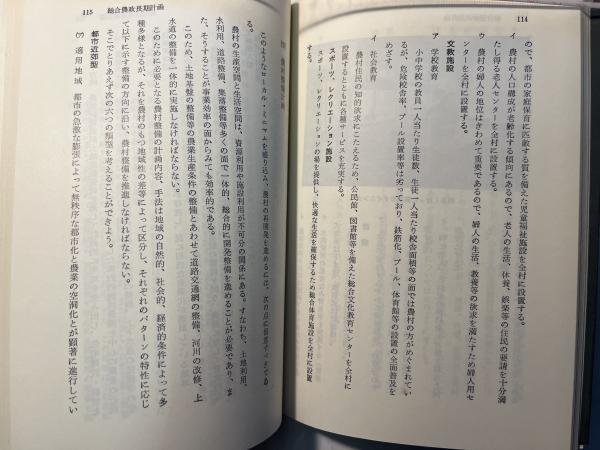 114
ので、都市の家庭保育に匹敵する質を備えた児童福祉施設を全村に設置する。
イ 農村の人口構成が老齢化する傾向にあるので、老人の生活、休養、娯楽等の住民の要請を十分満
たし得る老人センターを全村に設置する。
ウ 農村の婦人の地位はきわめて重要であるので、婦人の生活、教養等の欲求を満たすため婦人用セ
ンターを全村に設置する。
文教施設
ア 学校教育
小中学校の教員一人当たり生徒数、生徒一人当たり校舎面積等の面では農村の方がめぐまれてい
るが、危険校舎率、プール設置率等は劣っており、鉄筋化、プール、体育館等の設置の全面普及を
めざす。
イ 社会教育
農村住民の知的欲求にこたえるため、公民館、図書館等を備えた総合文化教育センターを全村に
設置するとともに各種サービスを充実する。
スポーツ、レクリエーション施設
スポーツ、レクリエーションの場を提供し、快適な生活を確保するため総合体育施設を全村に設置
する。
115 総合農政長期計画
このようなローカル・ミニマムを盛り込み、農村の再開発を進めるには、次の点に留意すべきであ
る。
農村の生産空間と生活空間は、資源利用や施設利用が不可分の関係にある。すなわち、土地利用、
水利用、道路整備、集落整備等多くの面で一体的、総合的に開発整備を進めることが必要であり、ま
た、そうすることが事業効率の面からみても効率的である。
このため、土地基盤の整備等の農業生産条件の整備とあわせて道路交通網の整備、河川の改修、上
水道の整備を一体的に実施しなければならない。
このために必要となる農村整備の計画内容、手法は地域の自然的、社会的、経済的条件によって多
種多様となるが、それを農村のもつ地域性の差等によって区分し、それぞれのパターンの特性に応じ
て以下に示す整備の方向に沿い、農村整備を推進しなければならない。
そこでとりあえず次の六つの類型を考えることができよう。
都市近郊型
(ア) 適用地域 都市の急激な膨張によって無秩序な都市化と農業の空洞化とが顕著に進行してい